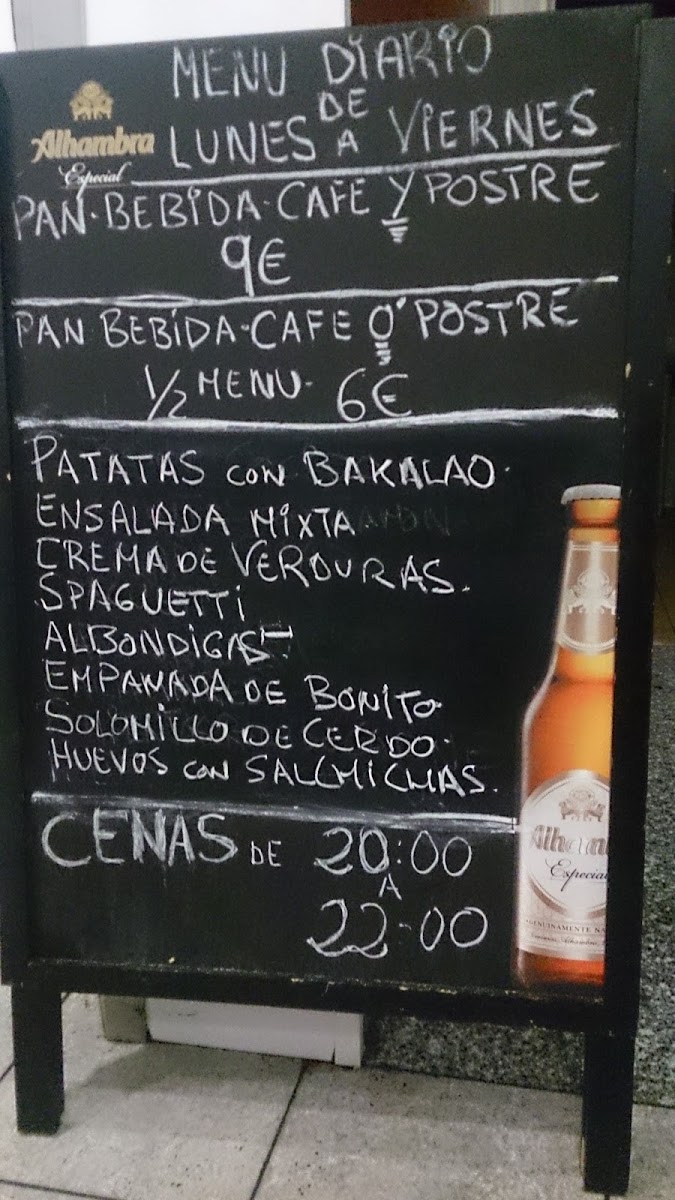 MENU DIARIO
DE
LUNES A VIERNES
Alhambra
Especial
PAN·BEBIDA·CAFE Y POSTRE
9€
PAN BEBIDA·CAFE O' POSTRE
1/2 MENU· 6€
PATATAS CON BAKALAO·
ENSALADA MIXTA
CREMA DE VERDURAS.
SPAGUETTI
ALBONDIGAS
EMPANADA DE BONITO
SOLOMILLO DE CERDO·
HUEVOS CON SALCHICHAS.
CENAS DE 20:00
A
22-00
Especial
GENUINAMENTE